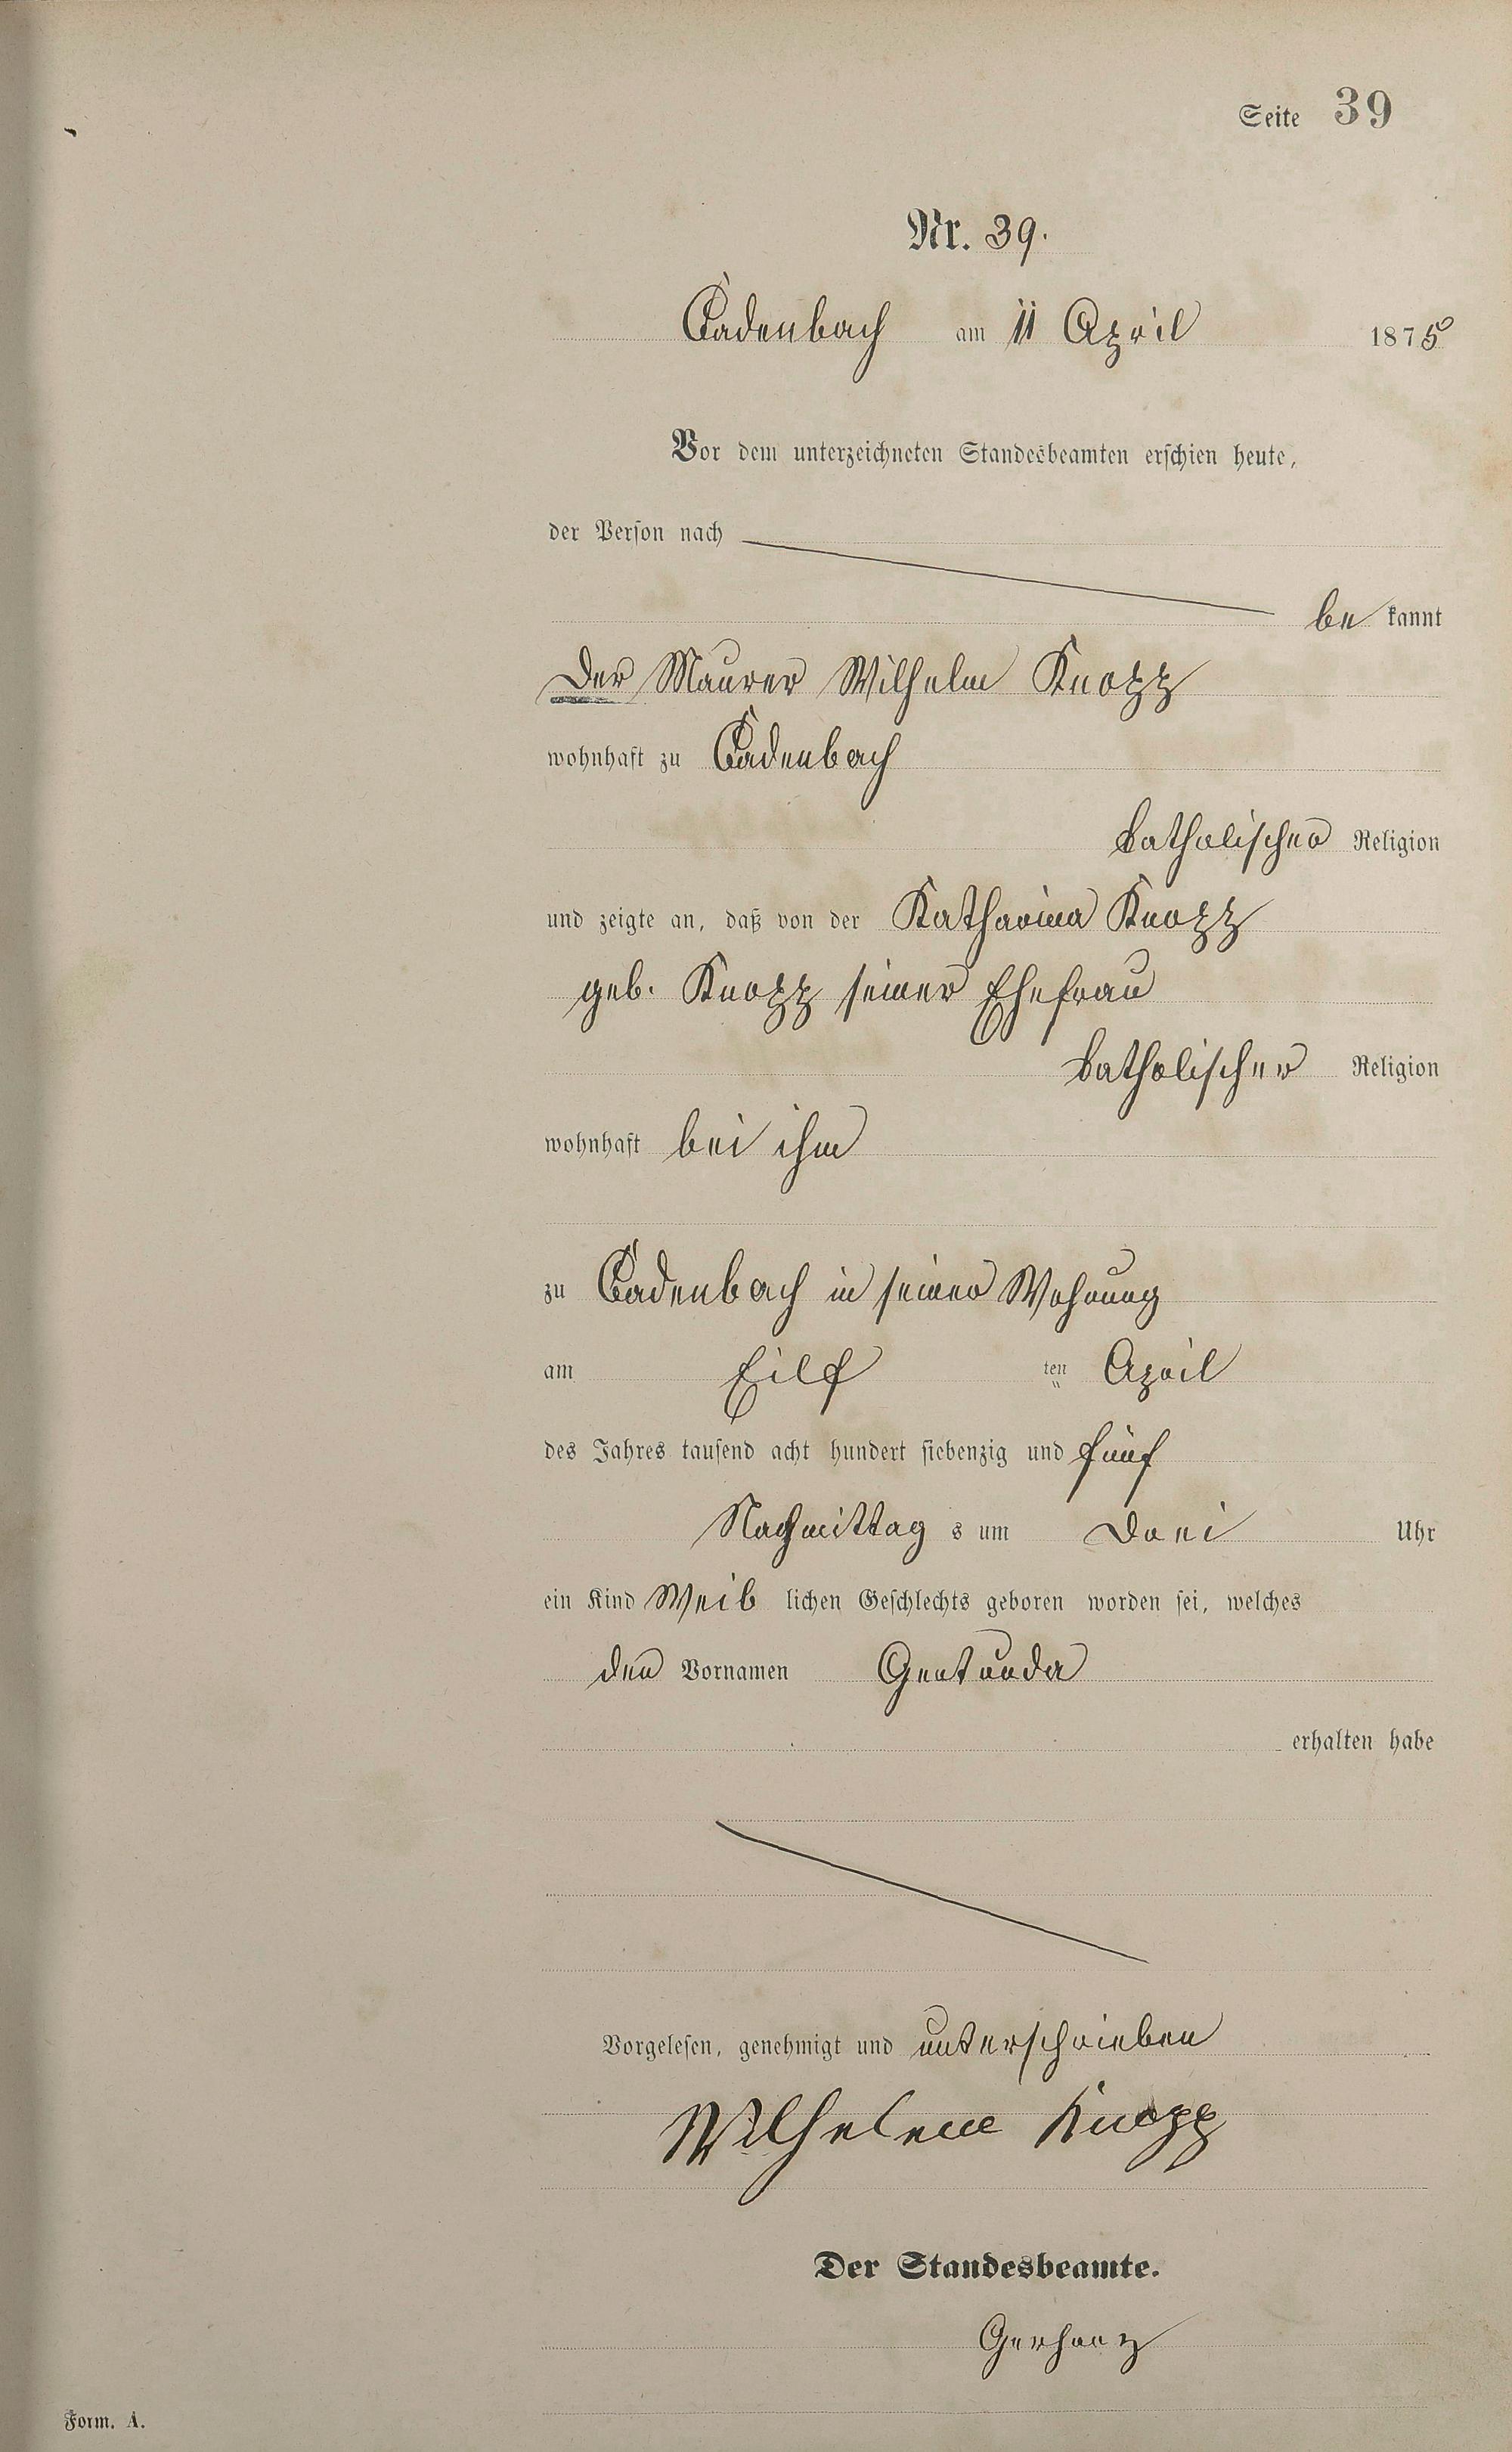 Seite 39
Nr. 39.
Cadenbach am 11 April 1875
Vor dem unterzeichneten Standesbeamten erschien heute,
der Person nach
be kannt
Der Maurer Wilhelm Knopp
wohnhaft zu Cadenbach
katholischer Religion
und zeigte an, daß von der Katharina Knopp
geb. Knopp seiner Ehefrau
katholischer Religion
wohnhaft bei ihm
zu Cadenbach in seiner Wohnung
am Eilf ten April
des Jahres tausend acht hundert siebenzig und fünf
Nachmittag s um Drei Uhr
ein Kind Weib lichen Geschlechts geboren worden sei, welches
den Vornamen Gertruda
erhalten habe
Vorgelesen, genehmigt und unterschrieben
Wilhelm Knopp
Der Standesbeamte.
Gerharz
Form. A.